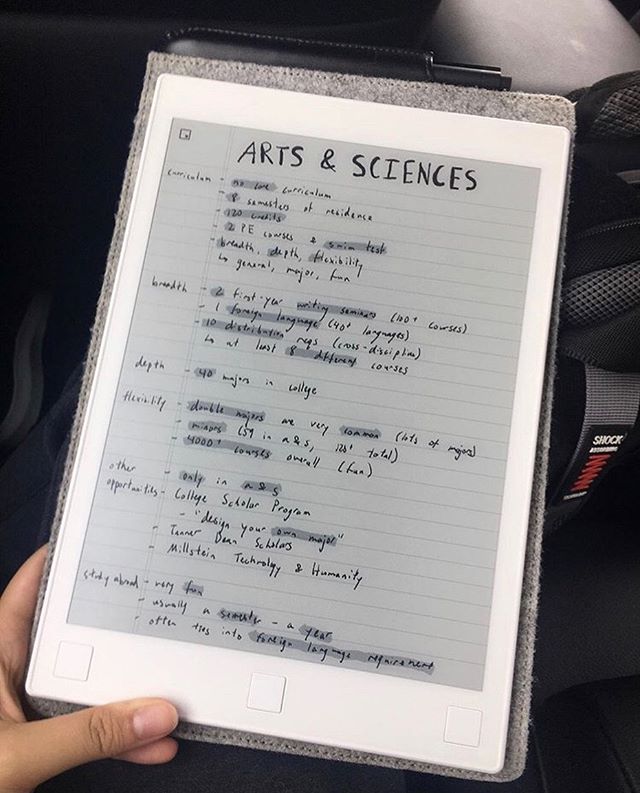 ARTS & SCIENCES
curriculum - no core curriculum
- 8 semesters of residence
- 120 credits
- 2 PE courses & swim test
- breadth, depth, flexibility
↳ general, major, fun
breadth - 2 first-year writing seminars (100+ courses)
- 1 foreign language (40+ languages)
- 10 distribution reqs (cross-discipline)
↳ at least 8 different courses
depth - 40 majors in college
flexibility - double majors are very common (lots of majors)
- minors (59 in a & s, 120+ total)
- 4000+ courses overall (fun)
other - only in a & s
opportunities - College Scholar Program
- "design your own major"
- Tanner Dean Scholars
- Millstein Technology & Humanity
study abroad - very fun
- usually a semester - a year
- often ties into foreign language requirement
SHOCK